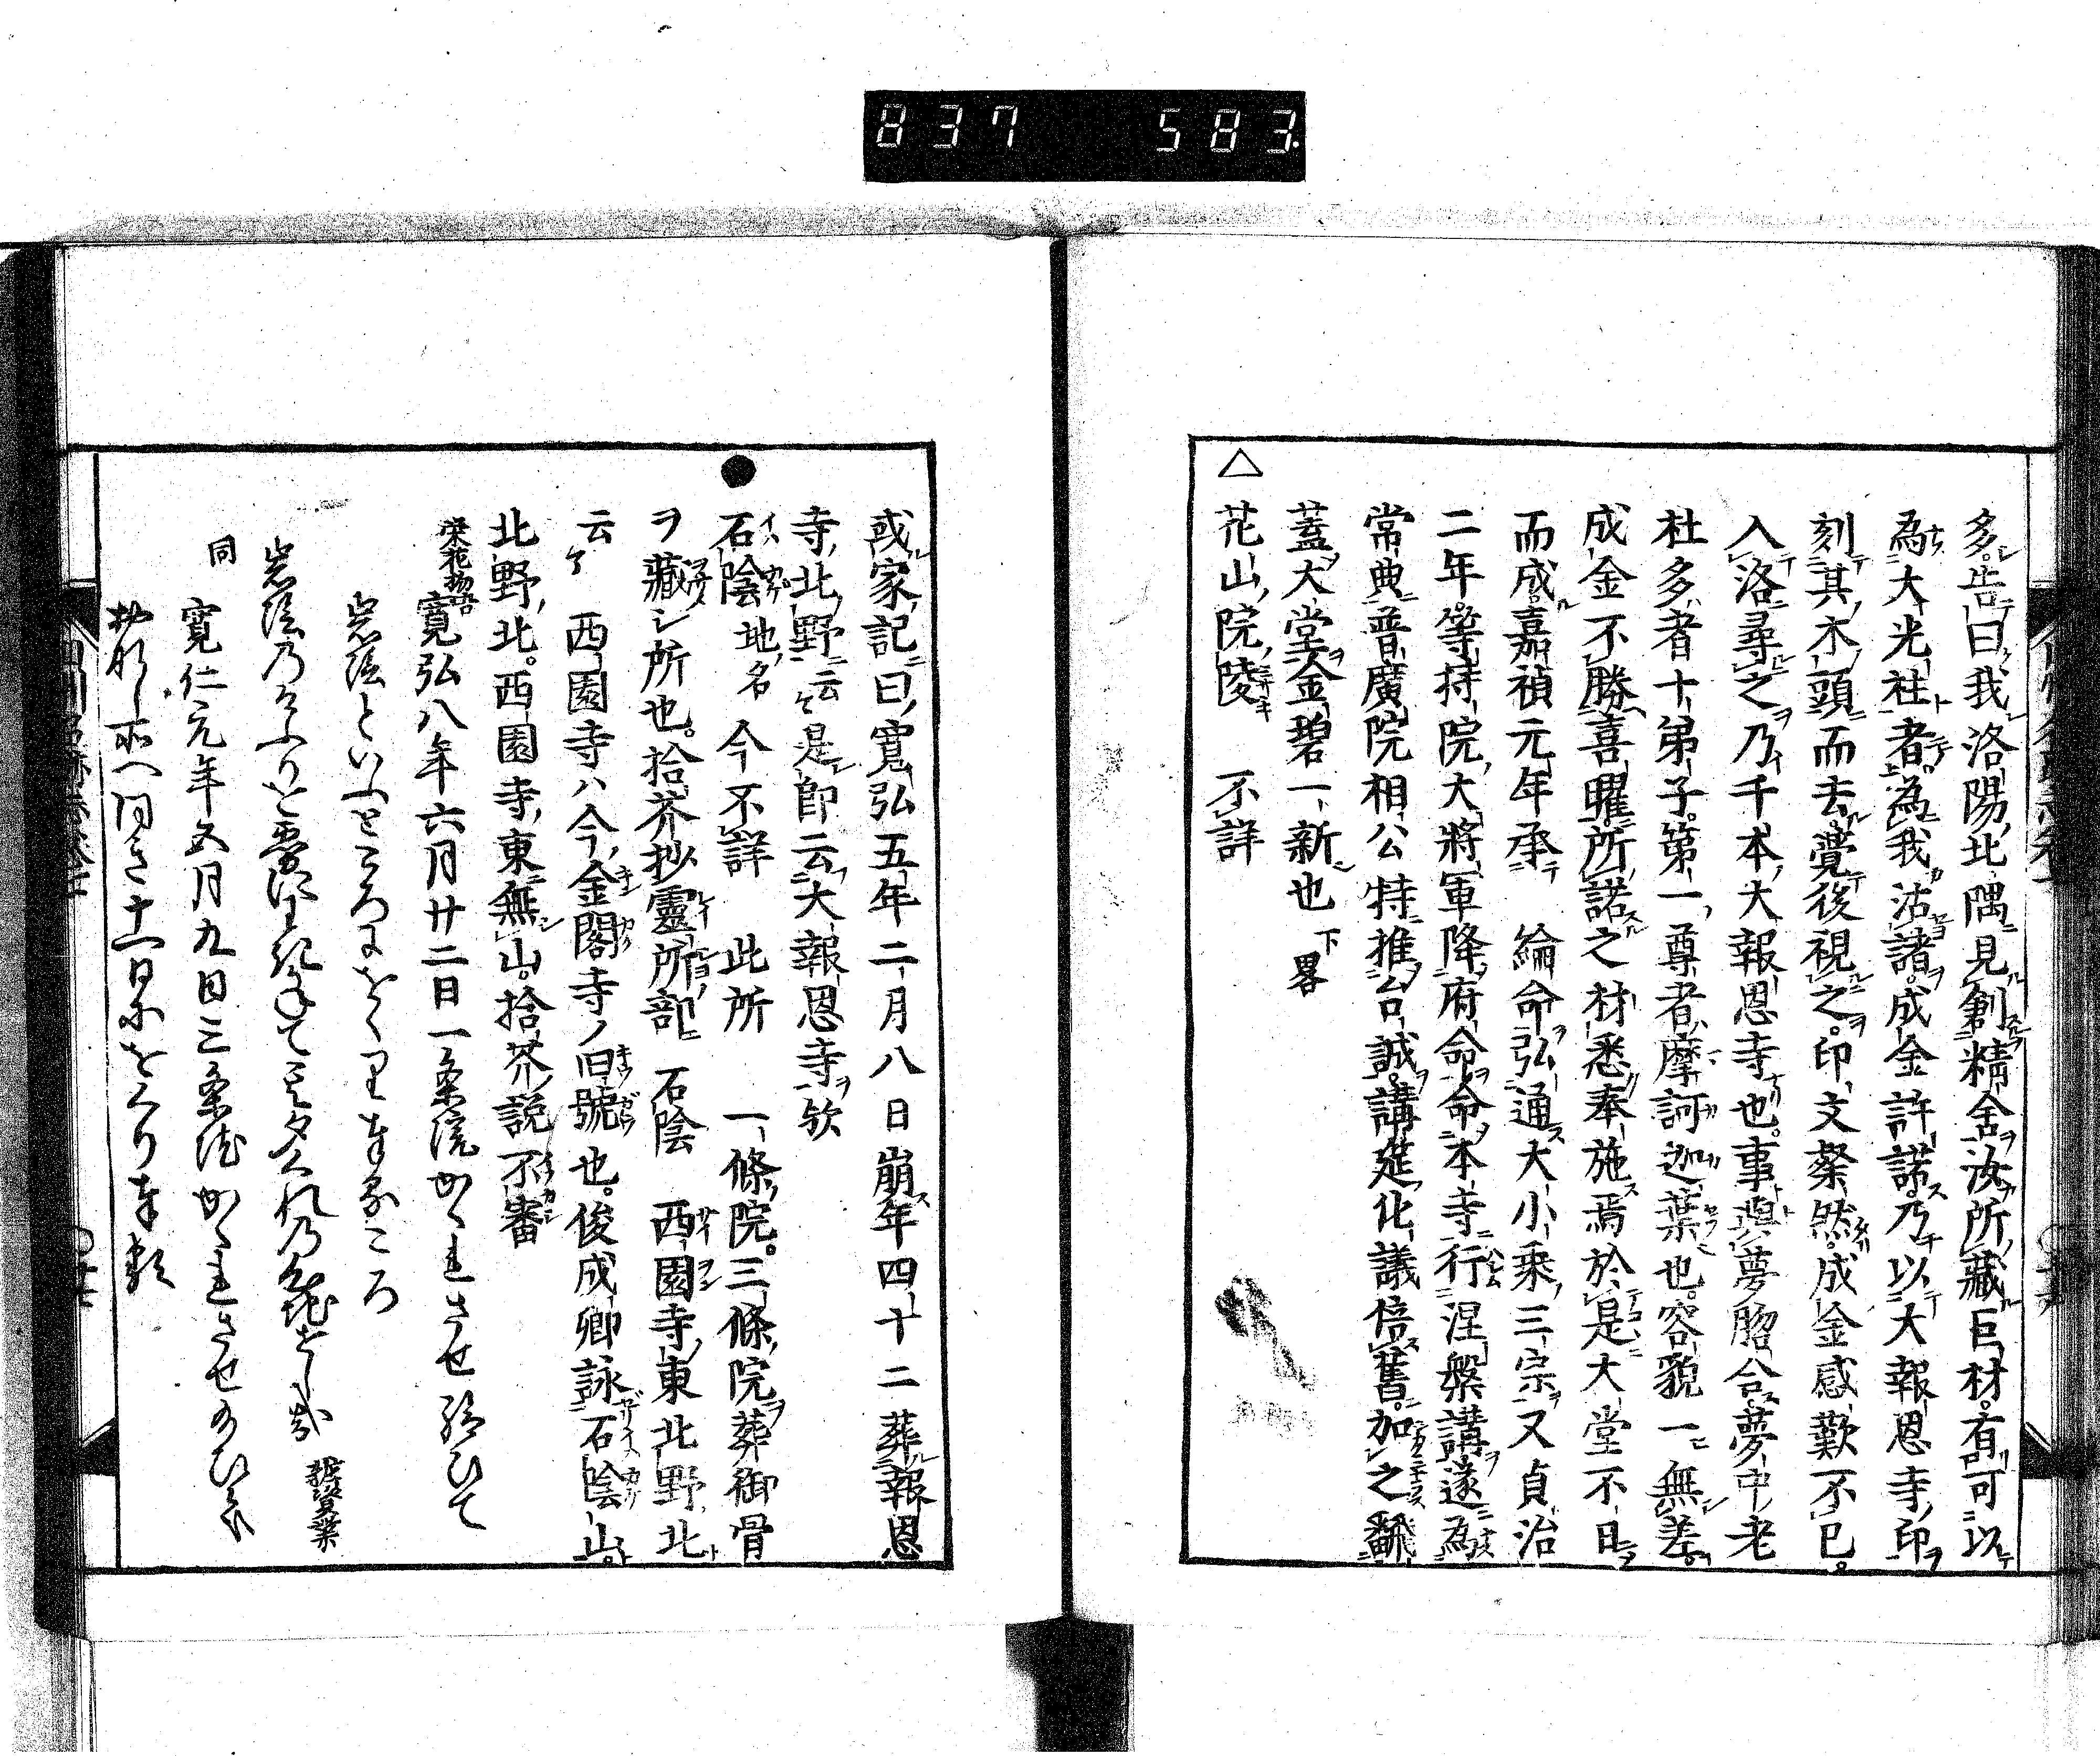 837 583.
多告曰我洛陽北隅見創精舍汝所藏巨材有可以
為大光社者為我沽諸成金許諾乃以大報恩寺印
刻其木頭而去覺後視之印文粲然成金感歎不已
入洛尋之乃千本大報恩寺也事與夢脗合夢中老
杜多者十弟子第一尊者摩訶迦葉也容貌一無差
成金不勝喜躍所諾之材悉奉施焉於是大堂不日
而成嘉禎元年承 綸命弘通大小乘三宗又貞治
二年等持院大將軍降府命命本寺行涅槃講遂為
常典普廣院相公特推台誠講莚化議倍舊加之翻
蓋大堂金碧一新也下畧
△花山院陵 不詳
或家記曰寛弘五年二月八日崩年四十二葬報恩
寺北野云々是即云大報恩寺欤
●石陰地名今不詳 此所 一條院三條院葬御骨
ヲ藏シ所也拾芥抄靈所部 石陰 西園寺東北野北
云々 西園寺ハ今金閣寺ノ旧號也俊成卿詠石陰山
北野北西園寺東無山拾芥説不審
栄花物語 寛弘八年六月廿二日一条院かくれさせ給ひて
岩陰といふところにをくり奉るころ
岩陰の
同 寛仁元年五月九日三条院かくれさせのひ